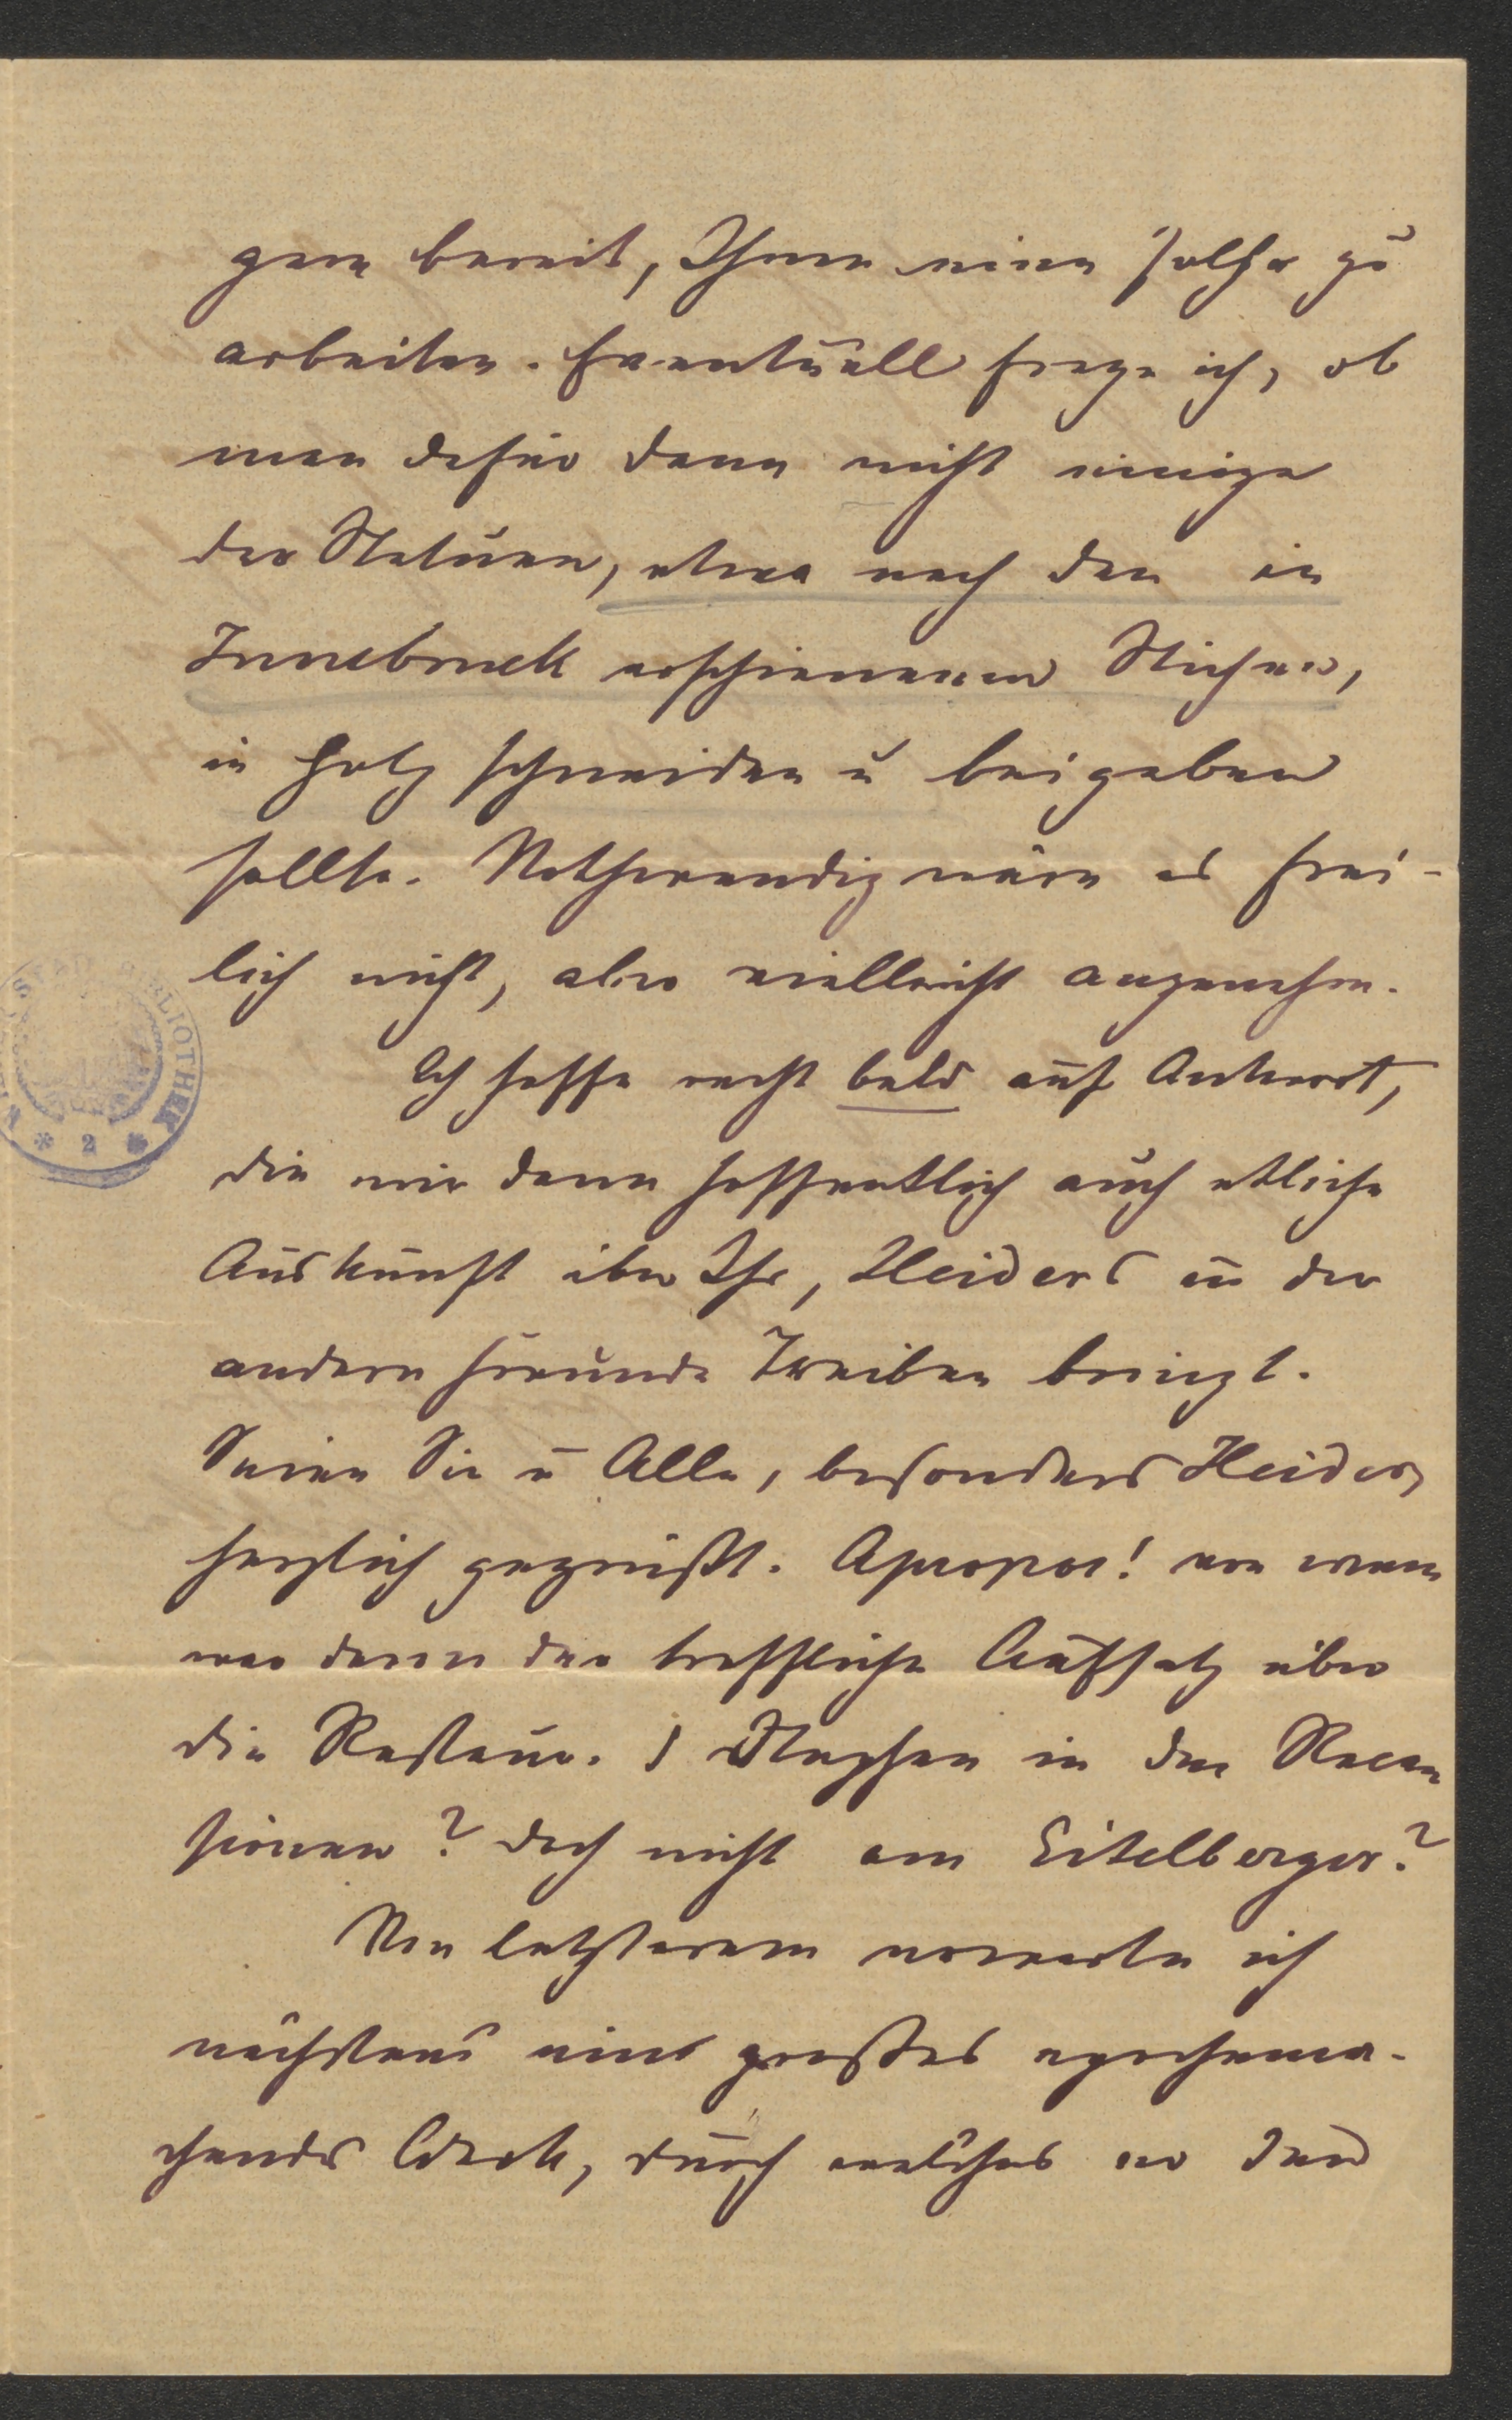 gern bereit, Ihnen einen solchen zu
arbeiten. Eventuell frage ich, ob
man dafür dann nicht einige
der Statuen, etwa nach den in
Innsbruck erschienenen Stichen,
in Holz schneiden u beigeben
sollte. Nothwendig wäre es frei-
lich nicht, aber vielleicht angenehm.
Ich hoffe recht bald auf Antwort,
die mir dann hoffentlich auch etliche
Auskunft über Ihr, Heiders u der
andern Freunde Treiben bringt.
Seien Sie u Alle, besonders Heider,
herzlich gegrüßt. Apropos! von wem
war denn der treffliche Aufsatz über
die Restaur. v Stephan in den Recen
sionen? doch nicht von Eitelberger?
Von letzterem erwarte ich
nächstens eines großes epochema-
chendes Werk, durch welches er den
BIBLIOTHEK
* 2 *